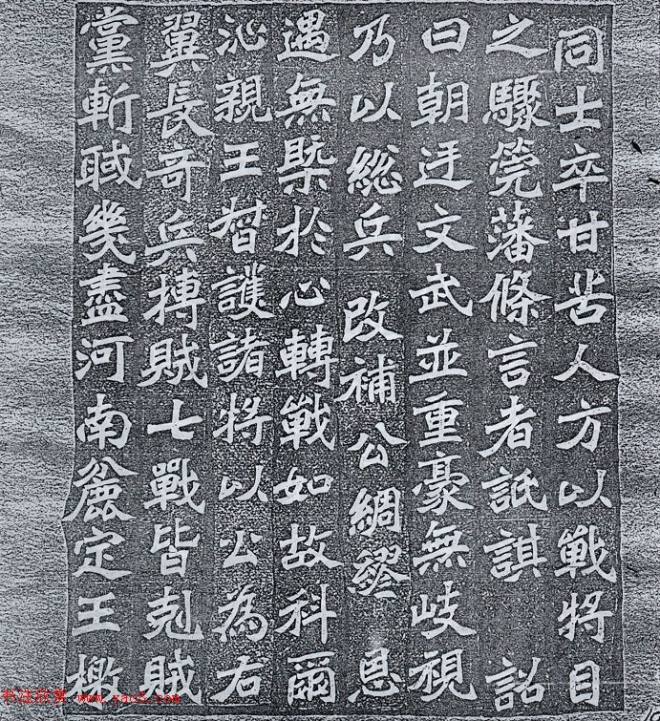 同士卒甘苦人方以戰將目
之驟筦藩條言者詆諆 詔
曰朝廷文武並重豪無歧視
乃以緫兵 改補公綢繆 恩
遇無槩於心轉戰如故科爾
沁親王督護諸將以公為右
翼長奇兵搏賊七戰皆剋賊
黨斬馘幾盡河南麤定王檄
书法欣赏 www.yac5.com